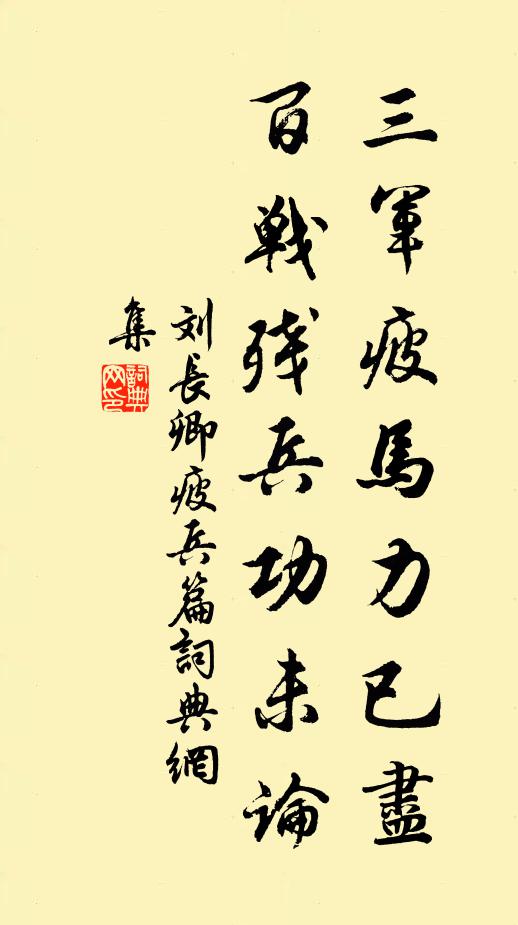 三軍疲馬力已盡
百戰残兵功未論
刘長卿疲兵篇詞典網
集
詞典
网印